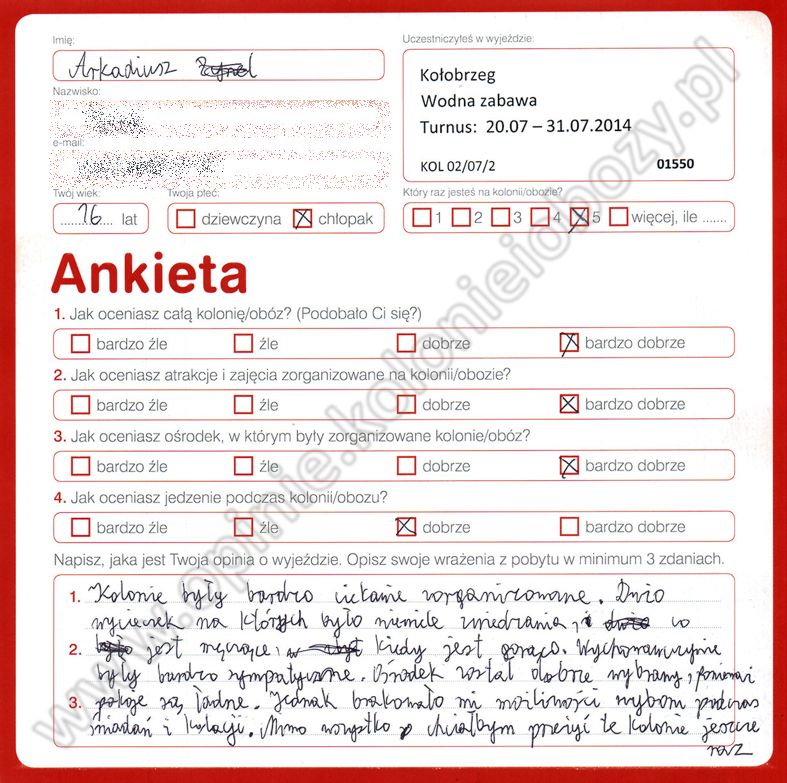 Imię:
Arkadiusz
Uczestniczyłeś w wyjeździe:
Kołobrzeg
Wodna zabawa
Turnus: 20.07 – 31.07.2014
KOL 02/07/2 01550
Nazwisko:
e-mail:
Twój wiek:
16 lat
Twoja płeć:
dziewczyna chłopak
Który raz jesteś na kolonii/obozie?
1 2 3 4 5 więcej, ile .......
Ankieta
1. Jak oceniasz całą kolonię/obóz? (Podobało Ci się?)
bardzo źle źle dobrze bardzo dobrze
2. Jak oceniasz atrakcje i zajęcia zorganizowane na kolonii/obozie?
bardzo źle źle dobrze bardzo dobrze
3. Jak oceniasz ośrodek, w którym były zorganizowane kolonie/obóz?
bardzo źle źle dobrze bardzo dobrze
4. Jak oceniasz jedzenie podczas kolonii/obozu?
bardzo źle źle dobrze bardzo dobrze
Napisz, jaka jest Twoja opinia o wyjeździe. Opisz swoje wrażenia z pobytu w minimum 3 zdaniach.
1. Kolonie były bardzo ciekawie zorganizowane. Dużo
wycieczek na których było niemile zwiedzania, co
2. jest męczące, kiedy jest gorąco. Wychowawczynie
były bardzo sympatyczne. Ośrodek został dobrze wybrany, ponieważ
3. pokoje są ładne. Jednak brakowało mi możliwości wyboru podczas
śniadań i kolacji. Mimo wszystko chciałbym przeżyć te kolonie jeszcze
raz
www.opinie.kolonieiobozy.pl